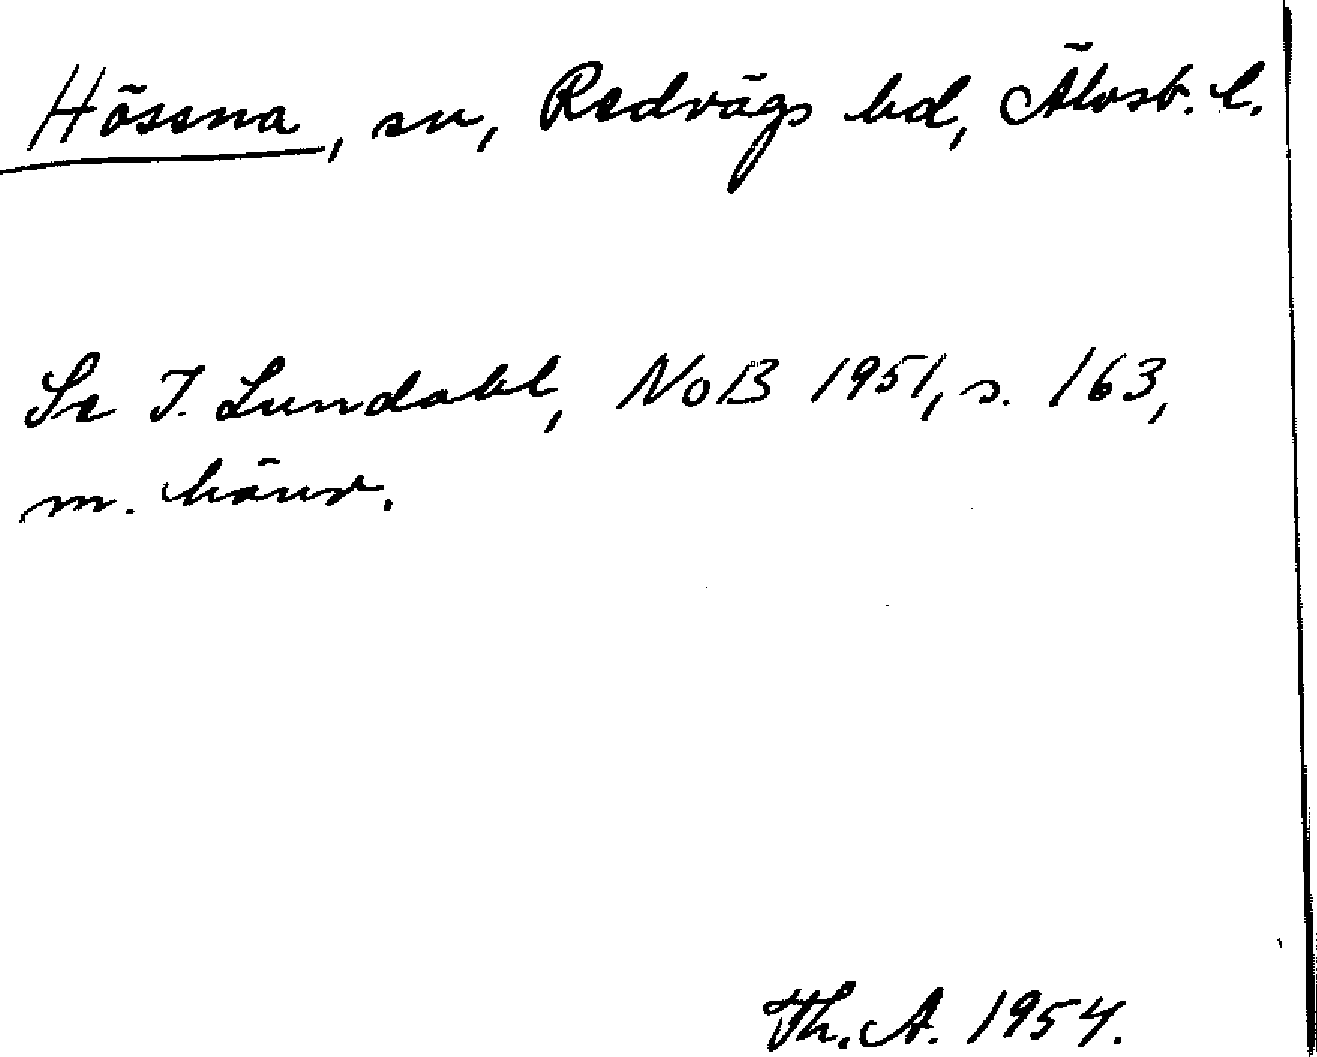 Hössna, sn, Redvägs hd, Älvsb. l.
Se I. Lundahl, NoB 1951, s. 163,
m. hänv.
Th. A. 1954.